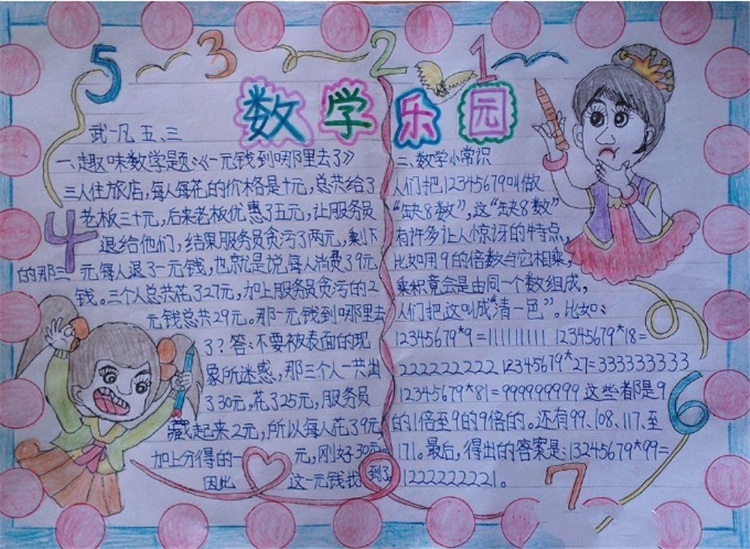 5 3 2 1
数学乐园
武一凡 五、三
一、趣味数学题:《一元钱到哪里去3》
三人住旅店,每人每花的价格是十元,总共给了
老板三十元,后来老板优惠了五元,让服务员
退给他们,结果服务员贪污了两元,剩下
的那三元每人退了一元钱,也就是说每人消费了9元
钱。三个人总共花了27元,加上服务员贪污的2
元钱总共29元。那一元钱到哪里去
了?答:不要被表面的现
象所迷惑,那三个人一共出
了30元,花了25元,服务员
藏起来2元,所以每人花了9元,
加上分得的一元,刚好30元。
因此这一元钱找到了
二、数学小常识
人们把12345679叫做
“缺8数”,这“缺8数”
有许多让人惊讶的特点,
比如用9的倍数与它相乘,
乘积竟会是由同一个数组成,
人们把这叫成“清一色”。比如:
12345679*9=111111111 12345679*18=
222222222 12345679*27=333333333
12345679*81=999999999 这些都是9
的1倍至9的9倍的。还有99、108、117、至
171。最后,得出的答案是:13245679*99=
1222222221。
4
6
7